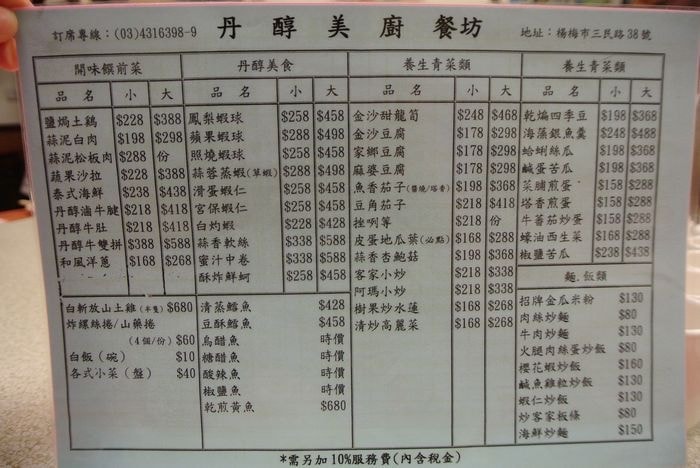 訂席專線：(03)4316398-9 丹醇美廚餐坊 地址：楊梅市三民路38號
開味饌前菜
品名 小 大
鹽焗土鷄 $228 $388
蒜泥白肉 $198 $298
蒜泥松板肉 $288 份
蔬果沙拉 $228 $388
泰式海鮮 $238 $438
丹醇滷牛腱 $218 $418
丹醇牛肚 $218 $418
丹醇牛雙拼 $388 $588
和風洋蔥 $168 $268
白斬放山土雞(半隻) $680
炸螺絲捲/山藥捲
(4個/份) $60
白飯(碗) $10
各式小菜(盤) $40
丹醇美食
品名 小 大
鳳梨蝦球 $258 $458
蘋果蝦球 $288 $498
照燒蝦球 $258 $458
蒜蓉蒸蝦(草蝦) $288 $498
滑蛋蝦仁 $258 $458
宮保蝦仁 $258 $458
白灼蝦 $228 $428
蒜香軟絲 $338 $588
蜜汁中卷 $338 $588
酥炸鮮蚵 $258 $458
清蒸鱈魚 $428
豆酥鱈魚 $458
烏醋魚 時價
糖醋魚 時價
酸辣魚 時價
椒鹽魚 時價
乾煎黃魚 $680
養生青菜類
品名 小 大
金沙甜龍筍 $248 $468
金沙豆腐 $178 $298
家鄉豆腐 $178 $298
麻婆豆腐 $178 $298
魚香茄子(醬燒/塔香) $198 $368
豆角茄子 $218 $418
挫咧等 $218 份
皮蛋地瓜葉(必點) $168 $288
蒜香杏鮑菇 $198 $368
客家小炒 $218 $338
阿嬤小炒 $218 $338
樹果炒水蓮 $168 $268
清炒高麗菜 $168 $268
養生青菜類
品名 小 大
乾煸四季豆 $198 $368
海藻銀魚羹 $248 $488
蛤蜊絲瓜 $198 $368
鹹蛋苦瓜 $198 $368
菜脯煎蛋 $158 $288
塔香煎蛋 $158 $288
牛蕃茄炒蛋 $158 $288
蠔油西生菜 $168 $288
椒鹽苦瓜 $238 $438
麵、飯類
招牌金瓜米粉 $130
肉絲炒麵 $80
牛肉炒麵 $130
火腿肉絲蛋炒飯 $80
櫻花蝦炒飯 $160
鹹魚雞粒炒飯 $130
蝦仁炒飯 $130
炒客家粄條 $80
海鮮炒麵 $150
*需另加10%服務費(內含稅金)